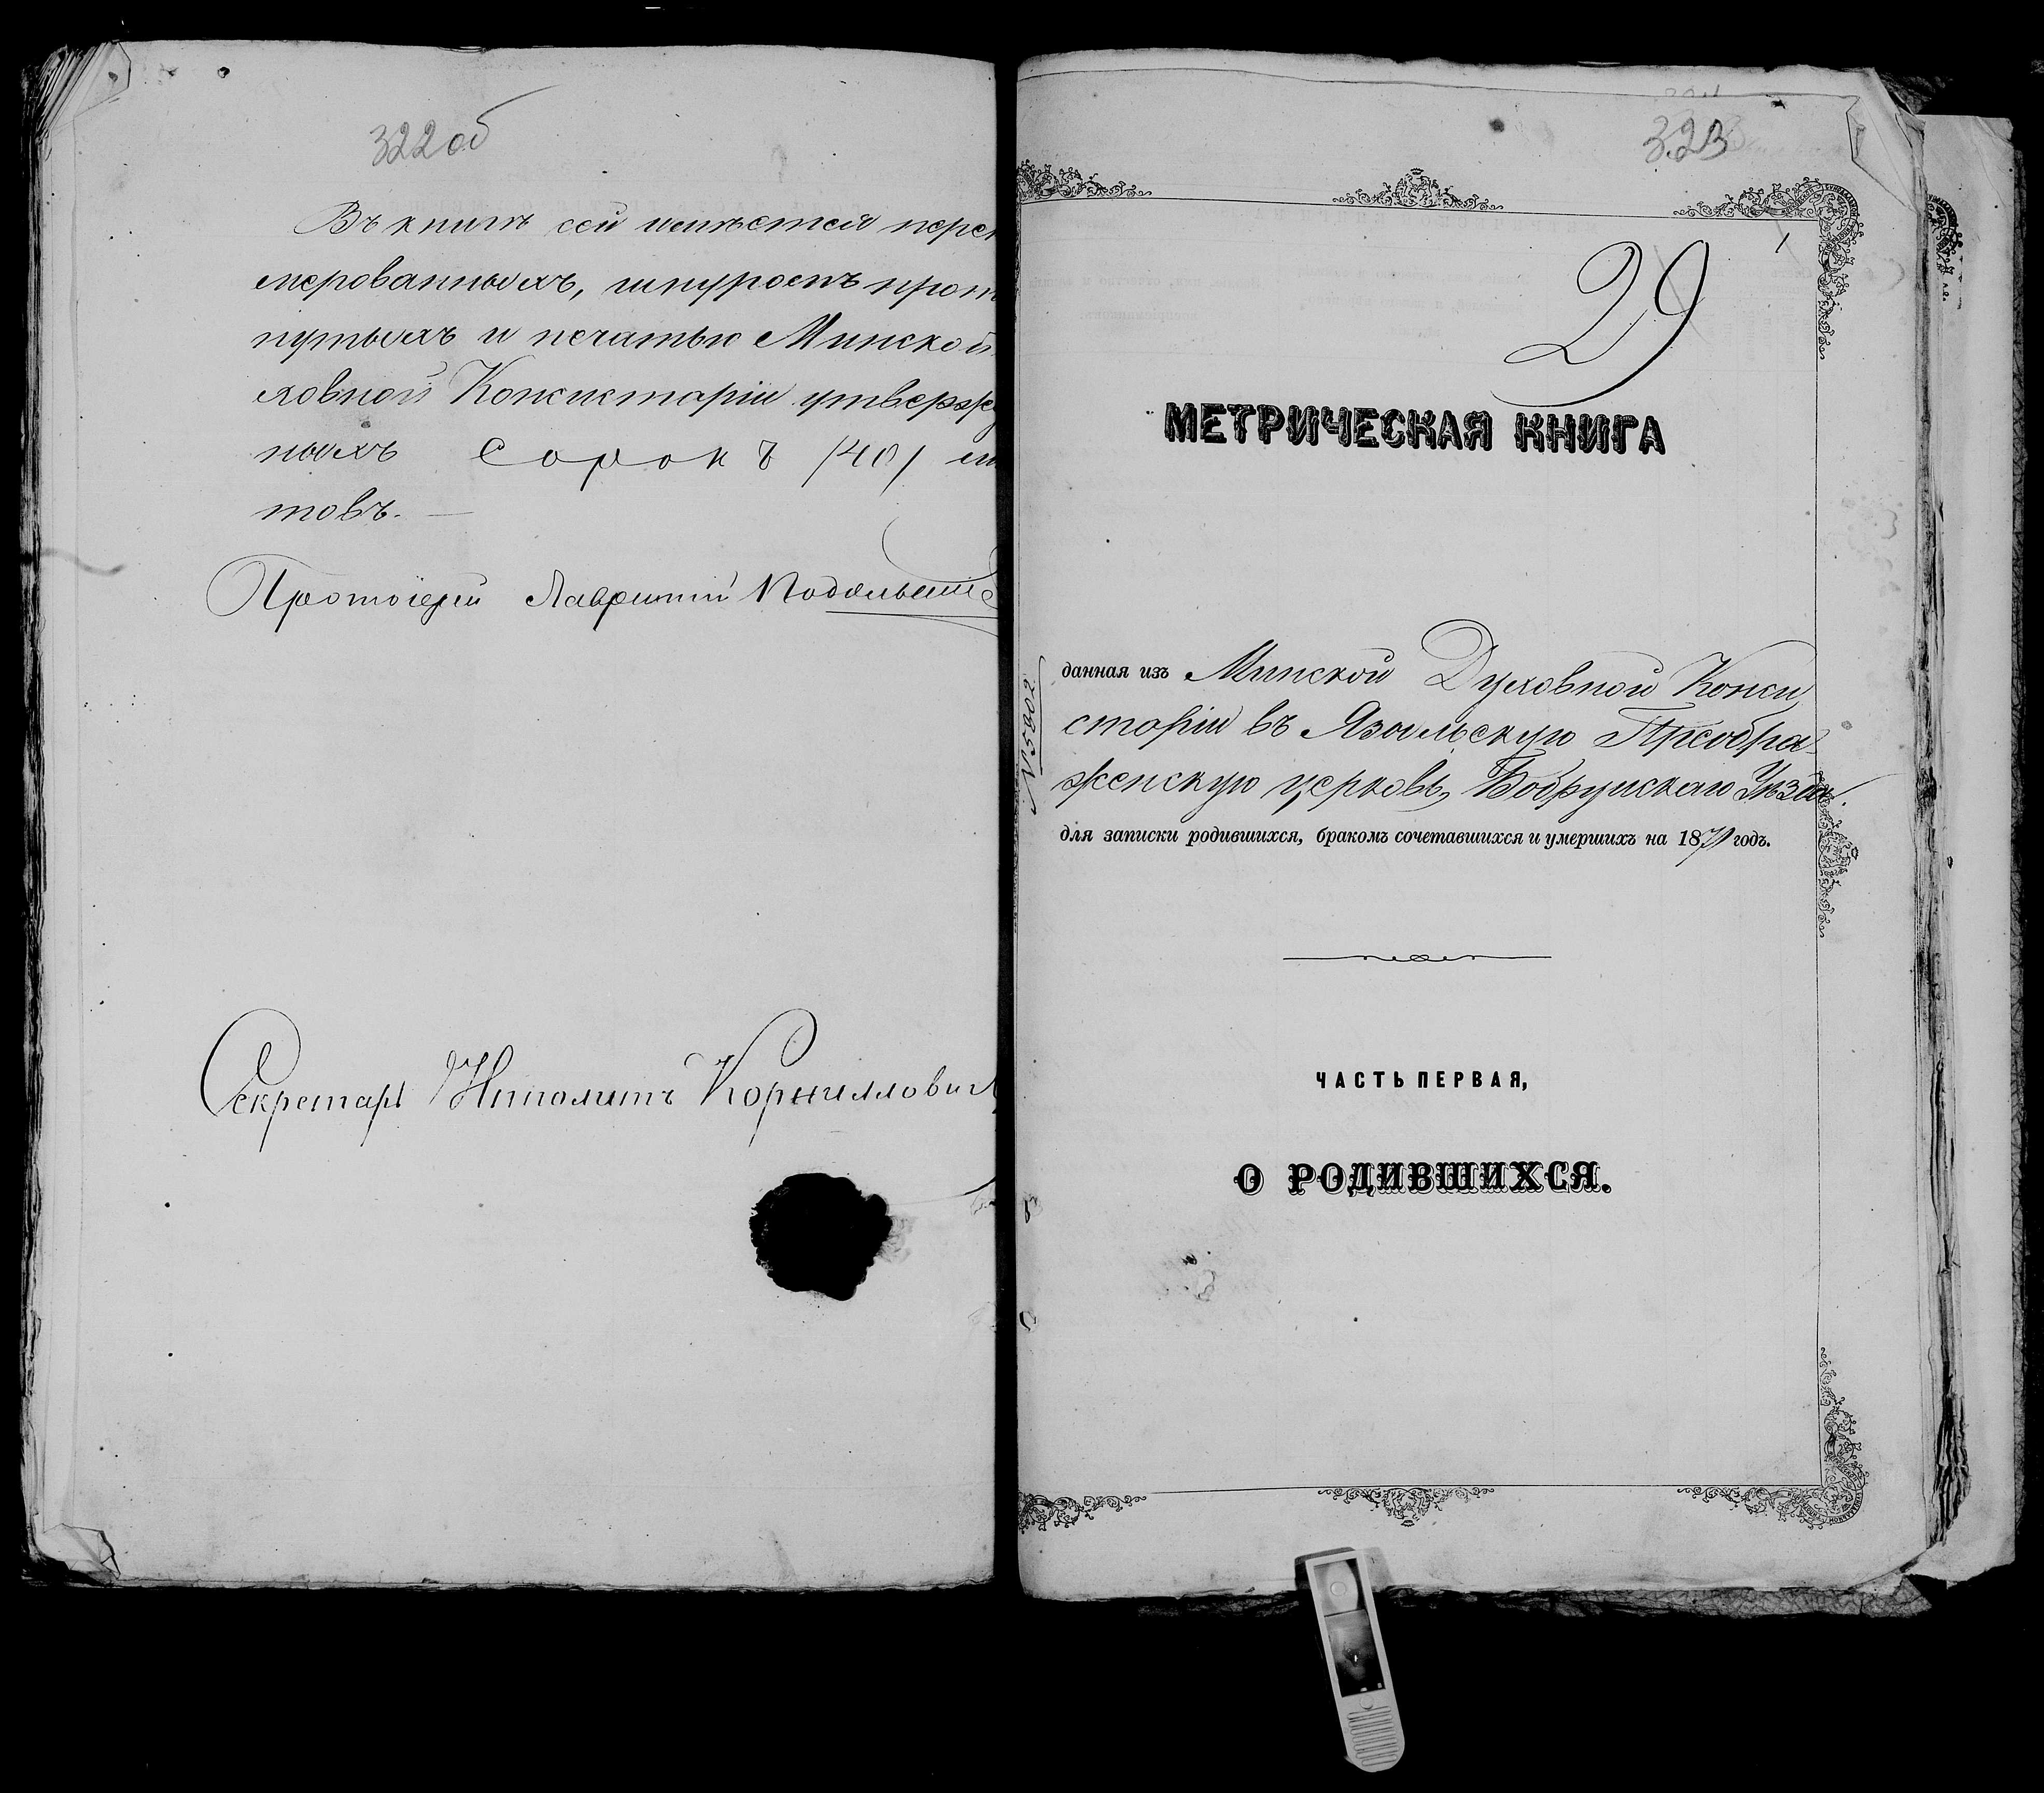 322 об
Въ книгѣ сей имѣется перен
мерованныхъ, шнуромъ прот
нутыхъ и печатью Минской
ховной Консисторіи утвержд
ныхъ сорокъ /40/ ли
товъ. —
Протоіерей Лаврентій
Секретарь Ипполитъ Корнилович
323
1
29
МЕТРИЧЕСКАЯ КНИГА
данная изъ Минской Духовной Конси
сторіи въ Языльскую Преобра
женскую церковь, Бобруйскаго Уѣзда.
для записки родившихся, бракомъ сочетавшихся и умершихъ на 1870 годъ.
№5002
ЧАСТЬ ПЕРВАЯ,
О РОДИВШИХСЯ.